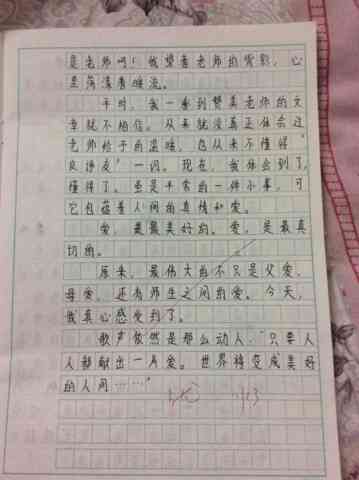 是老师吗！我望着老师的背影，心
里荡漾着暖流。
平时，我一看到赞美老师的文
章就不相信。从来就没真正体会过
老师给予的温暖，也从来不懂得“
良师友”一词。现在，我体会到了，
懂得了。虽是平常的一件小事，可
它包蕴着人间的真情和爱。
爱，是最美好的。爱，是最真
切的。
原来，最伟大的不只是父爱，
母爱，还有师生之间的爱。今天，
我真心感受到了。
歌声依然是那么动人，“只要人
人都献出一片爱。世界将变成美好
的人间……”